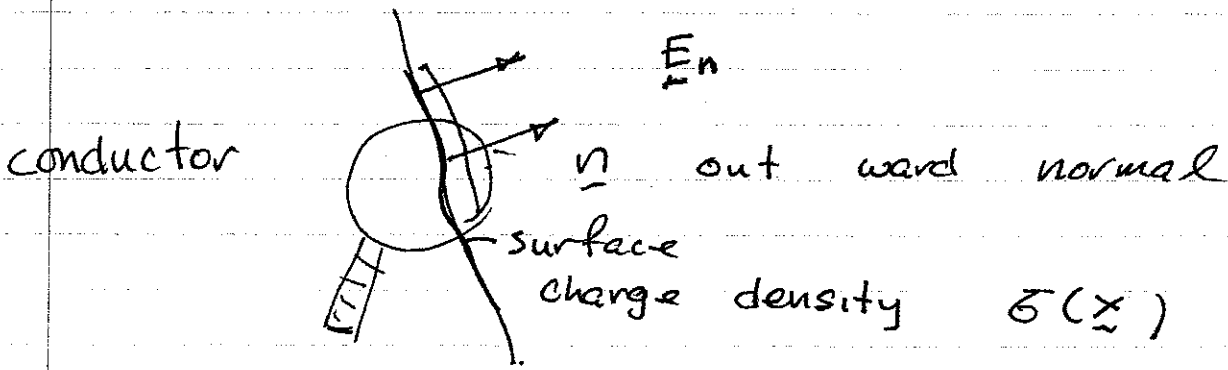 E̲n
conductor n̲ out ward normal
surface
charge density σ(x̰)